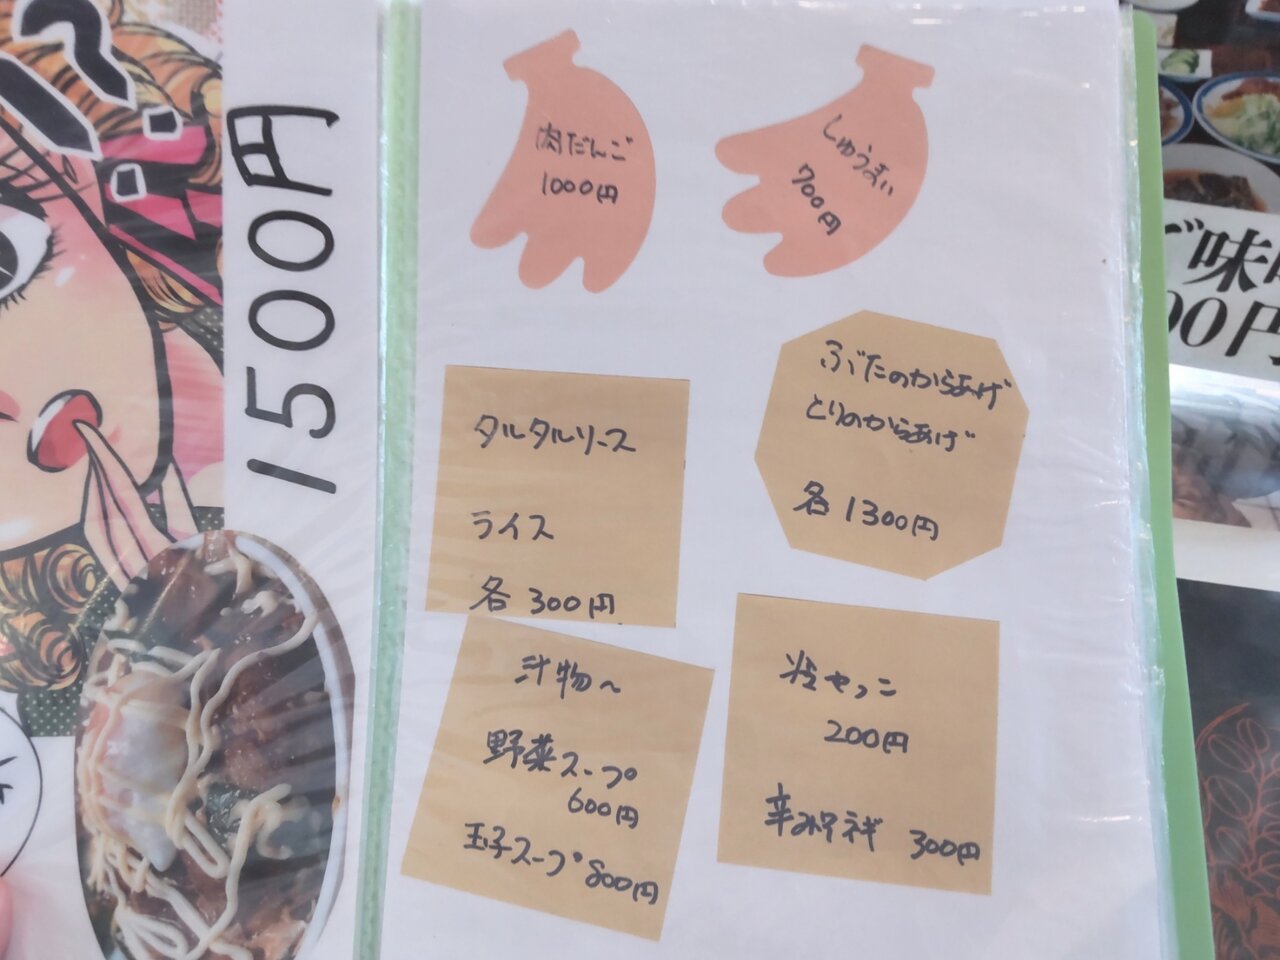 1500円
肉だんご
1000円
しゅうまい
700円
タルタルソース
ライス
各 300円
ぶたのからあげ
とりのからあげ
各 1300円
汁物〜
野菜スープ
600円
玉子スープ 800円
粒せっこ
200円
辛みそネギ 300円
ご味
00円